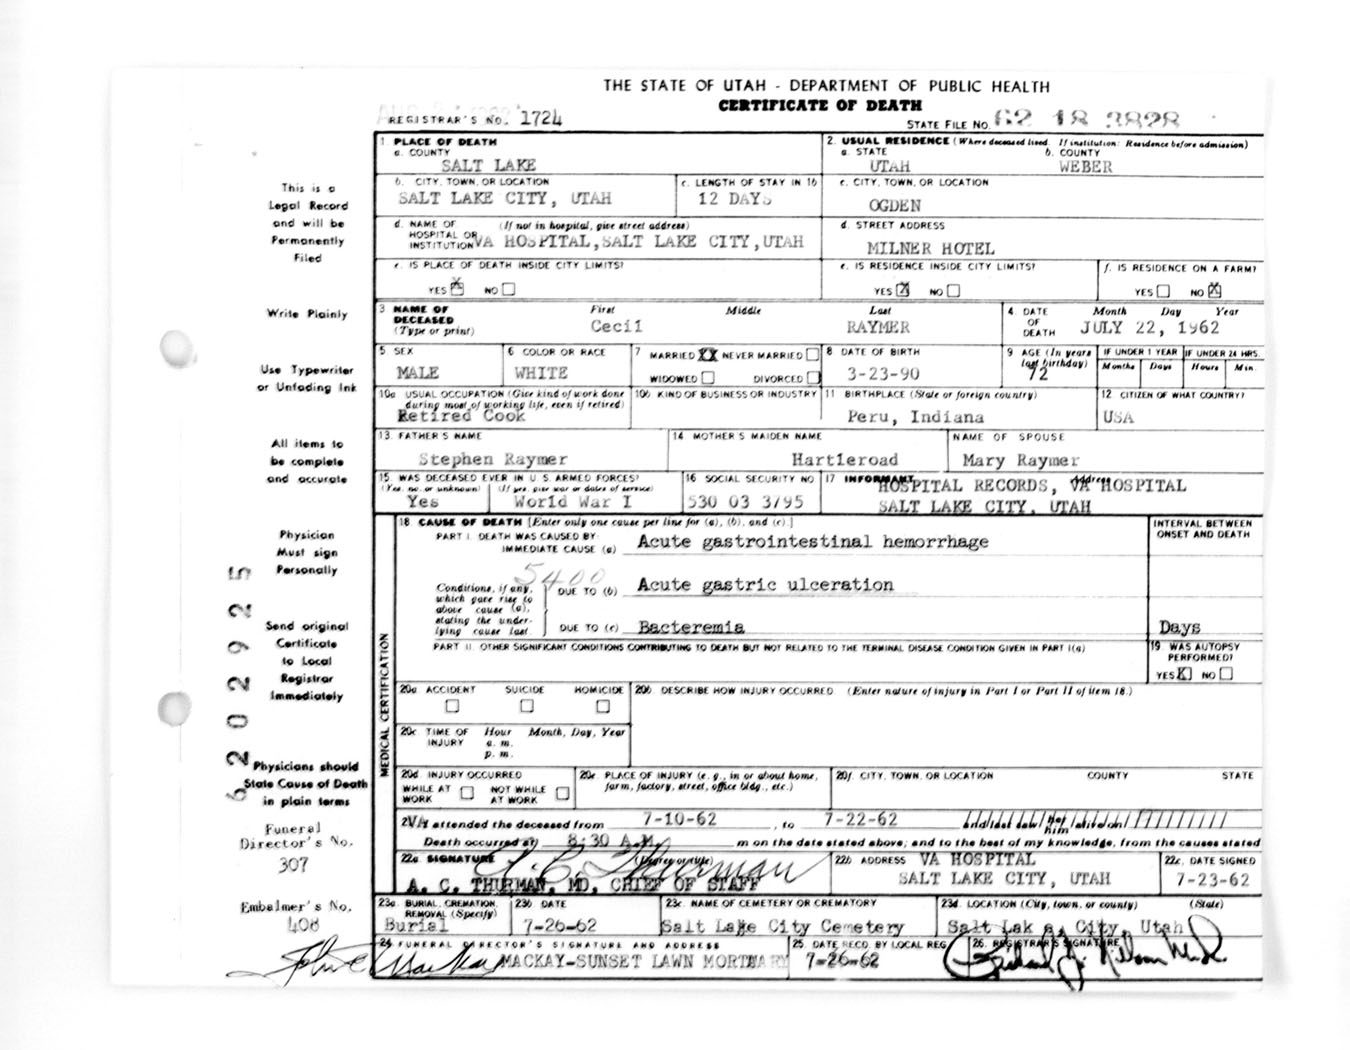 THE STATE OF UTAH - DEPARTMENT OF PUBLIC HEALTH
CERTIFICATE OF DEATH
REGISTRAR'S NO. 1724
STATE FILE NO. 62 18 3828
1. PLACE OF DEATH
a. COUNTY
SALT LAKE
2. USUAL RESIDENCE (Where deceased lived. If institution: Residence before admission)
a. STATE b. COUNTY
UTAH WEBER
b. CITY, TOWN, OR LOCATION
SALT LAKE CITY, UTAH
c. LENGTH OF STAY IN 1b
12 DAYS
c. CITY, TOWN, OR LOCATION
OGDEN
d. NAME OF HOSPITAL OR INSTITUTION (If not in hospital, give street address)
VA HOSPITAL, SALT LAKE CITY, UTAH
d. STREET ADDRESS
MILNER HOTEL
e. IS PLACE OF DEATH INSIDE CITY LIMITS?
YES X NO
e. IS RESIDENCE INSIDE CITY LIMITS?
YES X NO
f. IS RESIDENCE ON A FARM?
YES NO X
3 NAME OF DECEASED (Type or print)
First Middle Last
Cecil RAYMER
4. DATE OF DEATH
Month Day Year
JULY 22, 1962
5 SEX
MALE
6 COLOR OR RACE
WHITE
7 MARRIED XX NEVER MARRIED
WIDOWED DIVORCED
8 DATE OF BIRTH
3-23-90
9 AGE (In years last birthday)
72
IF UNDER 1 YEAR IF UNDER 24 HRS.
Months Days Hours Min.
10a USUAL OCCUPATION (Give kind of work done during most of working life, even if retired)
Retired Cook
10b KIND OF BUSINESS OR INDUSTRY
11 BIRTHPLACE (State or foreign country)
Peru, Indiana
12. CITIZEN OF WHAT COUNTRY?
USA
13. FATHER'S NAME
Stephen Raymer
14 MOTHER'S MAIDEN NAME
Hartleroad
NAME OF SPOUSE
Mary Raymer
15 WAS DECEASED EVER IN U.S. ARMED FORCES?
(Yes, no, or unknown) (If yes, give war or dates of service)
Yes World War I
16 SOCIAL SECURITY NO
530 03 3795
17 INFORMANT Address
HOSPITAL RECORDS, VA HOSPITAL
SALT LAKE CITY, UTAH
18 CAUSE OF DEATH [Enter only one cause per line for (a), (b), and (c).]
PART I. DEATH WAS CAUSED BY:
IMMEDIATE CAUSE (a) Acute gastrointestinal hemorrhage
INTERVAL BETWEEN ONSET AND DEATH
5400
Conditions, if any, which gave rise to above cause (a), stating the underlying cause last
DUE TO (b) Acute gastric ulceration
DUE TO (c) Bacteremia
Days
PART II. OTHER SIGNIFICANT CONDITIONS CONTRIBUTING TO DEATH BUT NOT RELATED TO THE TERMINAL DISEASE CONDITION GIVEN IN PART I(a)
19. WAS AUTOPSY PERFORMED?
YES X NO
MEDICAL CERTIFICATION
20a ACCIDENT SUICIDE HOMICIDE
20b. DESCRIBE HOW INJURY OCCURRED (Enter nature of injury in Part I or Part II of item 18.)
20c TIME OF INJURY Hour Month, Day, Year
a. m.
p. m.
20d. INJURY OCCURRED
WHILE AT WORK NOT WHILE AT WORK
20e. PLACE OF INJURY (e. g., in or about home, farm, factory, street, office bldg., etc.)
20f. CITY, TOWN, OR LOCATION COUNTY STATE
2 VA attended the deceased from 7-10-62, to 7-22-62 and last saw her him alive on
Death occurred at 8:30 A.M. m on the date stated above; and to the best of my knowledge, from the causes stated
22a. SIGNATURE (Degree or title)
A. C. Thurman
A. C. THURMAN, MD, CHIEF OF STAFF
22b ADDRESS VA HOSPITAL
SALT LAKE CITY, UTAH
22c. DATE SIGNED
7-23-62
23a. BURIAL, CREMATION, REMOVAL (Specify)
Burial
23b DATE
7-26-62
23c NAME OF CEMETERY OR CREMATORY
Salt Lake City Cemetery
23d. LOCATION (City, town, or county) (State)
Salt Lake City, Utah
24 FUNERAL DIRECTOR'S SIGNATURE AND ADDRESS
MACKAY-SUNSET LAWN MORTUARY
25. DATE RECD. BY LOCAL REG.
7-26-62
26. REGISTRAR'S SIGNATURE
This is a
Legal Record
and will be
Permanently
Filed
Write Plainly
Use Typewriter
or Unfading Ink
All items to
be complete
and accurate
Physician
Must sign
Personally
Send original
Certificate
to Local
Registrar
Immediately
Physicians should
State Cause of Death
in plain terms
Funeral
Director's No.
307
Embalmer's No.
408
6202925